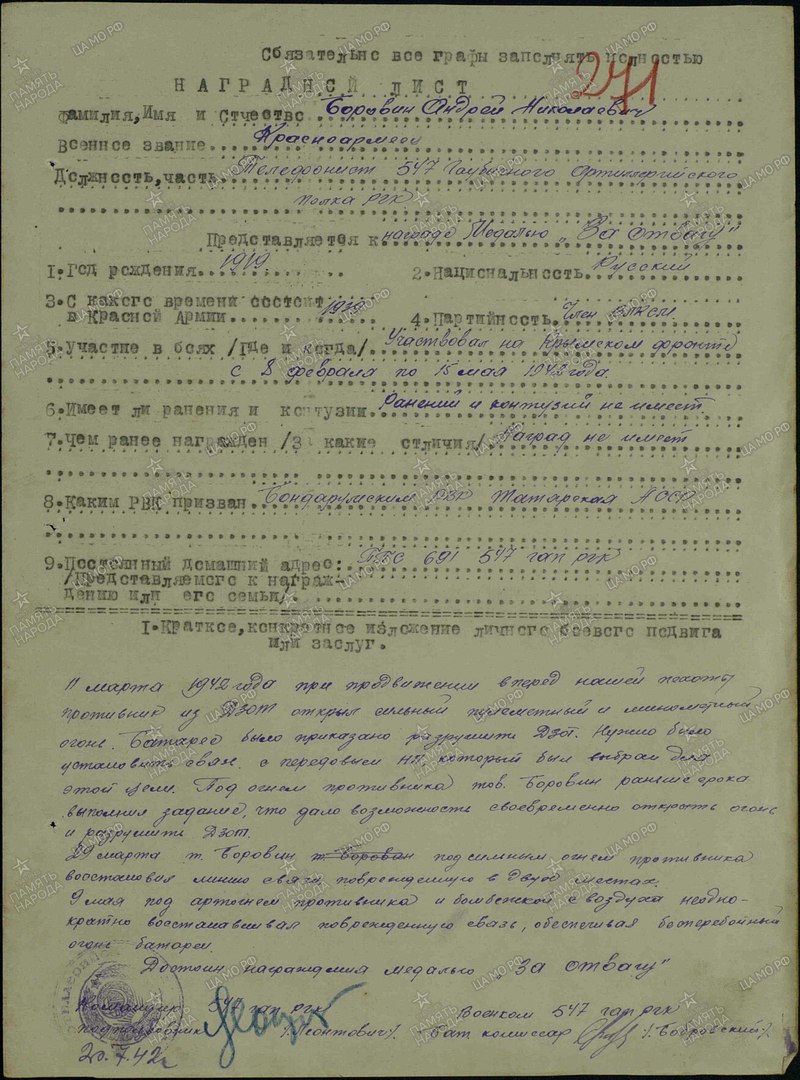 Обязательно все графы заполнять полностью
271
НАГРАДНОЙ ЛИСТ
Фамилия, Имя и Отчество Боровин Андрей Николаевич
Военное звание Красноармеец
Должность, часть Телефонист 547 Гаубичного Артиллерийского
полка РГК
Представляется к награде Медалью "За отвагу"
1. Год рождения 1919 2. Национальность Русский
3. С какого времени состоит
в Красной Армии 1939 4. Партийность Член ВЛКСМ
5. Участие в боях /где и когда/ Участвовал на Крымском фронте
с 8 февраля по 15 мая 1942 года.
6. Имеет ли ранения и контузии Ранений и контузий не имеет.
7. Чем ранее награжден /За какие отличия/ Наград не имеет
8. Каким РВК призван РВК Татарская АССР
9. Постоянный домашний адрес: ППС 691 547 гап ргк
/Представляемого к награж-
дению или его семьи/.
1. Краткое, конкретное изложение личного боевого подвига
или заслуг.
11 марта 1942 года при продвижении вперед нашей пехоты
противник из ДЗОТ открыл сильный пулеметный и минометный
огонь. Батарее было приказано разрушить Дзот. Нужно было
установить связь с передовым НП который был выбран для
этой цели. Под огнем противника тов. Боровин раньше срока
выполнил задание, что дало возможность своевременно открыть огонь
и разрушить Дзот.
29 марта т. Боровин т. Боровин под сильным огнем противника
восстановил линию связи поврежденную в двух местах.
9 мая под артогнем противника и бомбежкой с воздуха неодно-
кратно восстанавливал поврежденную связь, обеспечивая бесперебойный
огонь батареи.
Достоин награждения медалью "За отвагу"
Командир 547 гап ргк Военком 547 гап ргк
подполковник /Леонтович/. Бат. комиссар /Бобровский/.
20.7.42г